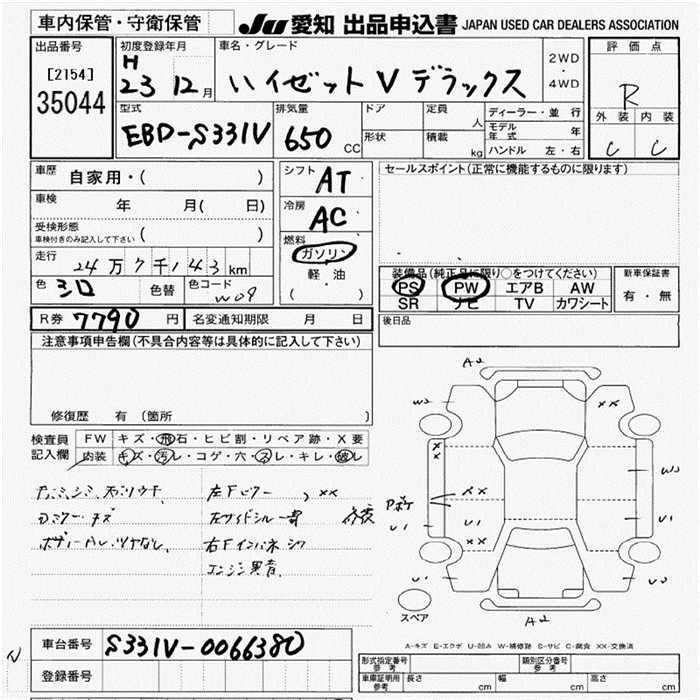 車内保管・守衛保管
JU 愛知 出品申込書 JAPAN USED CAR DEALERS ASSOCIATION
出品番号
[2154]
35044
初度登録年月
H
23 12月
車名・グレード
ハイゼットVデラックス
2WD
・
4WD
評価点
R
外装 内装
C C
型式
EBD-S331V
排気量
650 CC
ドア
形状
定員
人
積載
kg
ディーラー・並行
モデル年式 年
ハンドル 左・右
車歴
自家用・( )
車検
年 月( 日)
受検形態
車検付きのみ記入して下さい ( )
走行
24万7千143km
色 シロ
色替
色コード W09
シフト
AT
冷房
AC
燃料
ガソリン
軽油
( )
セールスポイント(正常に機能するものに限ります)
装備品(純正品に限り○をつけてください)
PS PW エアB AW
SR ナビ TV カワシート
新車保証書
有・無
R券 7790 円
名変通知期限 月 日
後日品
注意事項申告欄(不具合内容等は具体的に記入して下さい)
修復歴 有 (箇所 )
検査員
記入欄
FW キズ・飛石・ヒビ割・リペア跡・X要
内装 キズ・汚レ・コゲ・穴・スレ・キレ・破レ
左Fドアー XX
左サイドシル一部
右Fインパネ
エンジン異音
A2
W2
XX
X
X
XX
U1
U1
XX
U1
A2
スペア
A-キズ E-エクボ U-凹み W-補修跡 S-サビ C-腐食 XX-交換済
車台番号 S331V-0066380
登録番号
形式指定番号
参考
類別区分番号
参考
車庫証明用
参考
長さ cm 幅 cm 高さ cm